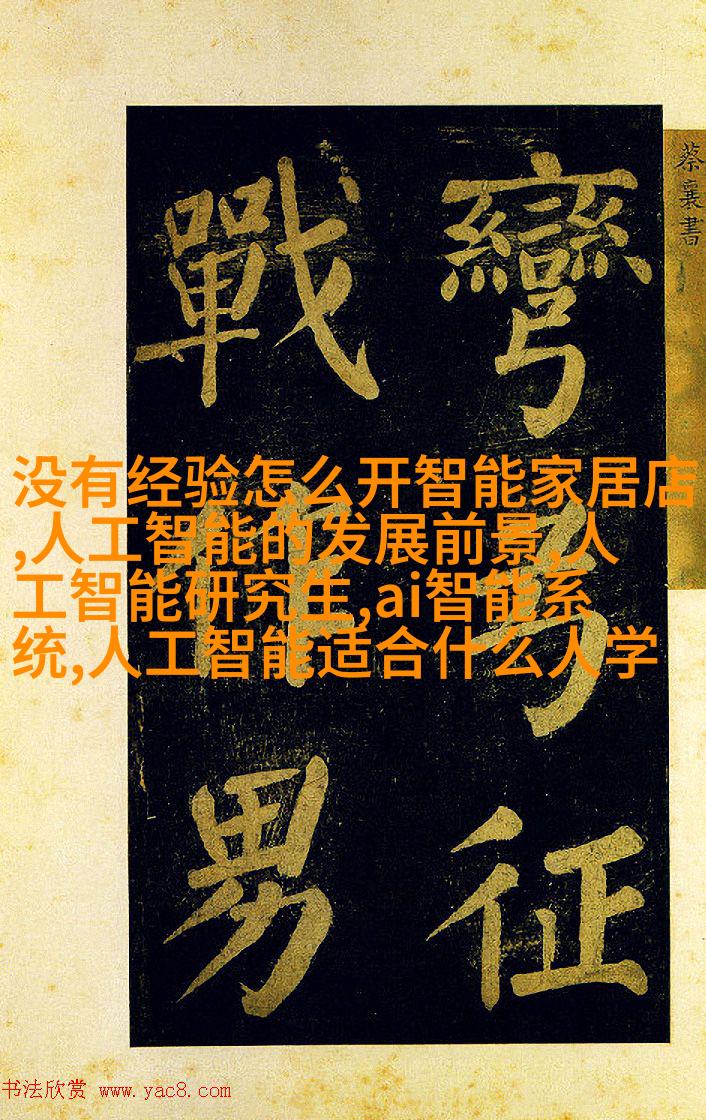 蔡襄書
彎
征
戰
男
没有经验怎么开智能家居店
,人工智能的发展前景,人
工智能研究生,ai智能系
统,人工智能适合什么人学
书法欣赏 www.yac8.com